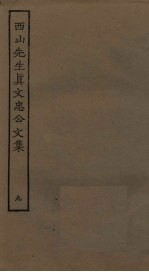 西山先生真文忠公文集
九